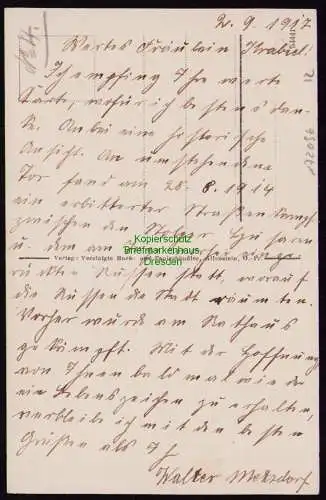 2. 9 1917
Wertes Fräulein
Ich empfing Ihre werte
Karte, wofür ich bestens dan-
ke. Anbei eine historische
Ansicht. An umstehendem
Tor fand am 28. 8. 1914
ein erbitterter Straßenkampf
zwischen den Stolper Husaren
u. den am
Verlag: Vereinigte Buch- und Papierhändler, Allenstein, O.-Pr.
rückten Russen statt, worauf
die Russen die Stadt räumten.
Vorher wurd am Rathaus
gekämpft. Mit der Hoffnung
von Ihnen bald mal wieder
ein Lebenszeichen zu erhalten,
verbleibe ich mit den besten
Grüßen als Ihr
Walter Metzdorf
Kopierschutz
Briefmarkenhaus
Dresden
172096
12